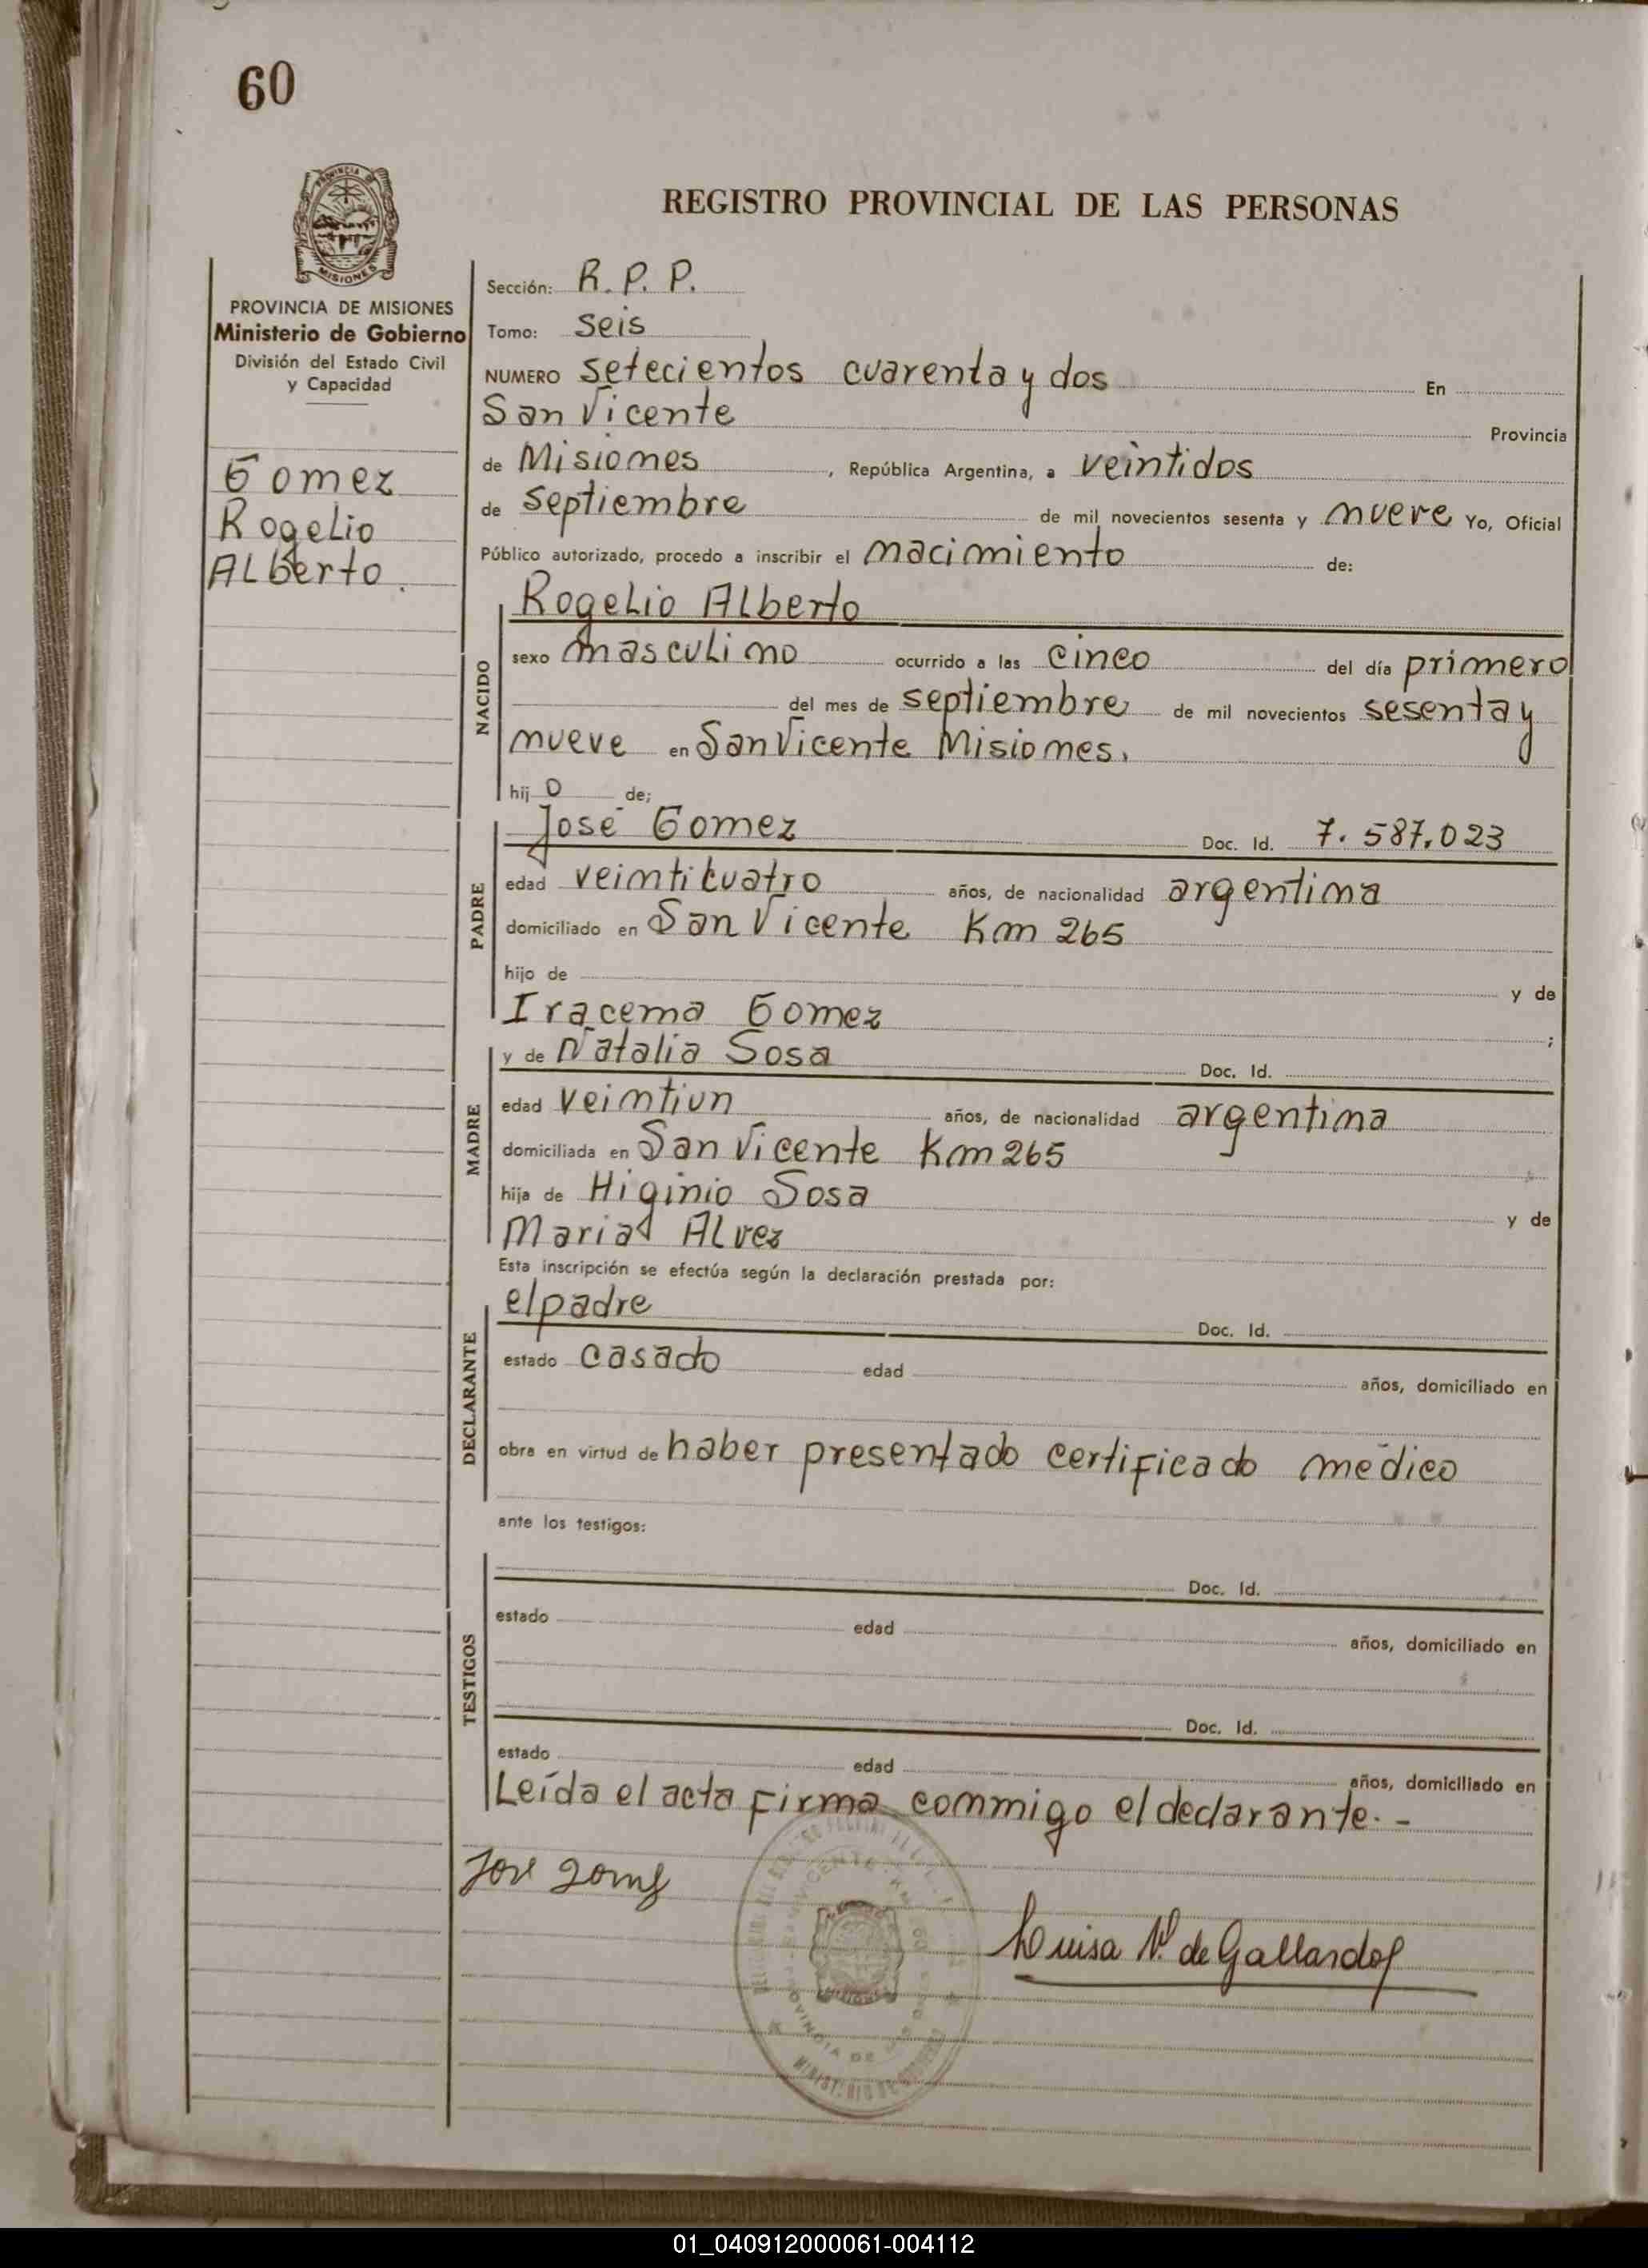 60
PROVINCIA DE
MISIONES
REGISTRO PROVINCIAL DE LAS PERSONAS
PROVINCIA DE MISIONES
Ministerio de Gobierno
División del Estado Civil
y Capacidad
Gomez
Rogelio
Alberto.
Sección: R. P. P.
Tomo: Seis
NUMERO setecientos cuarenta y dos En
San Vicente Provincia
de Misiones, República Argentina, a veintidos
de septiembre de mil novecientos sesenta y nueve Yo, Oficial
Público autorizado, procedo a inscribir el nacimiento de:
NACIDO
Rogelio Alberto
sexo masculino ocurrido a las cinco del día primero
del mes de septiembre de mil novecientos sesenta y
nueve en San Vicente Misiones.
hij o de;
PADRE
José Gomez Doc. Id. 7.587.023
edad veinticuatro años, de nacionalidad argentina
domiciliado en San Vicente Km 265
hijo de y de
Iracema Gomez ;
MADRE
y de Natalia Sosa Doc. Id.
edad veintiun años, de nacionalidad argentina
domiciliada en San Vicente Km 265
hija de Higinio Sosa y de
Maria Alvez
Esta inscripción se efectúa según la declaración prestada por:
DECLARANTE
el padre Doc. Id.
estado casado edad años, domiciliado en
obra en virtud de haber presentado certificado médico
ante los testigos:
TESTIGOS
Doc. Id.
estado edad años, domiciliado en
Doc. Id.
estado edad años, domiciliado en
Leída el acta firma conmigo el declarante.-
José Gomez
Luisa V. de Gallardo
SAN VICENTE
PROVINCIA DE
MISIONES
MINISTERIO DE GOBIERNO
01_040912000061-004112